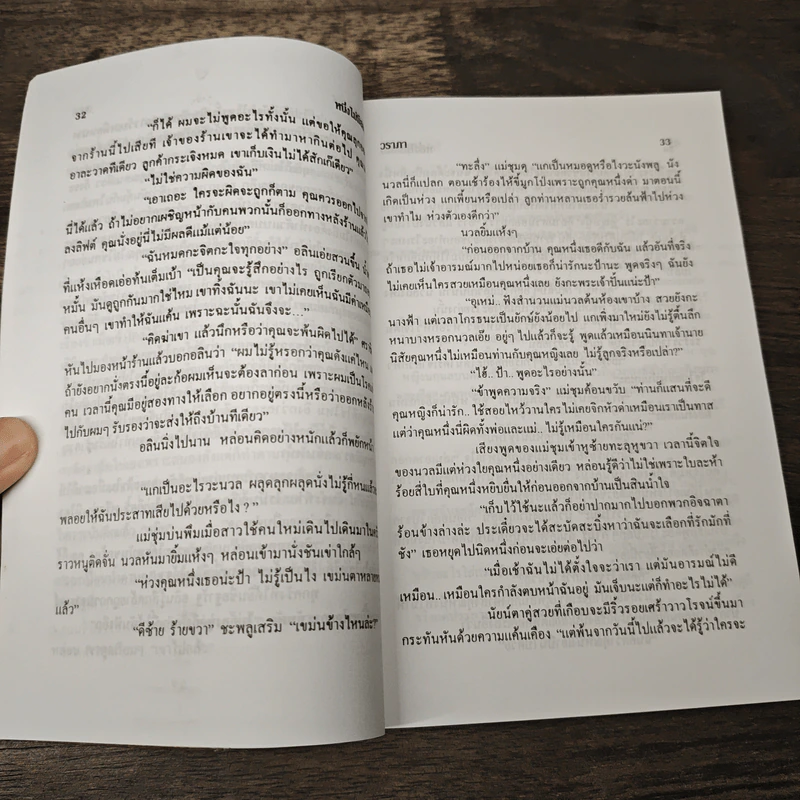 32
“ก็ได้ ผมจะไม่พูดอะไรทั้งนั้น แต่ขอให้คุณลุก
จากร้านนี้ไปเสียที เจ้าของร้านเขาจะได้ทำมาหากินต่อไป
อาละวาดทีเดียว ลูกค้ากระเจิงหมด เขาเก็บเงินไม่ได้สักเก๊เดียว”
“ไม่ใช่ความผิดของฉัน”
“เอาเถอะ ใครจะผิดจะถูกก็ตาม คุณควรออกไปจาก
นี้ได้แล้ว ถ้าไม่อยากเผชิญหน้ากับคนพวกนั้นก็ออกทางหลังร้านแล้ว
ลงลิฟต์ คุณนั่งอยู่นี่ไม่มีผลดีแม้แต่น้อย”
“ฉันหมดกะจิตกะใจทุกอย่าง” อลินเอ่ยสวนขึ้น
ที่แห้งเหือดเอ่อท้นเต็มเบ้า “เป็นคุณจะรู้สึกอย่างไร ถูกเรียกตัวมา
หมั้น มันดูถูกกันมากใช่ไหม เขาทิ้งฉันนะ เขาไม่เคยเห็นฉันมีค่า
คนอื่นๆ เขาทำให้ฉันแค้น เพราะฉะนั้นฉันจึงจะ...”
“คิดฆ่าเขา แล้วนึกหรือว่าคุณจะพ้นผิดไปได้”
หันไปมองหน้าร้านแล้วบอกอลินว่า “ผมไม่รู้หรอกว่าคุณดังแค่ไหน
ถ้ายังอยากนั่งตรงนี้อยู่ละก้อผมเห็นจะต้องลาก่อน เพราะผมเป็น
คน เวลานี้คุณมีอยู่สองทางให้เลือก อยากอยู่ตรงนี้หรือว่าออกหลังร้าน
ไปกับผมๆ รับรองว่าจะส่งให้ถึงบ้านทีเดียว”
อลินนิ่งไปนาน หล่อนคิดอย่างหนักแล้วก็พยักหน้า
“แกเป็นอะไรวะนวล ผลุดลุกผลุดนั่งไม่รู้ที่หนแล้ว
พลอยให้ฉันประสาทเสียไปด้วยหรือไง ?”
แม่ชุ่มบ่นพึมเมื่อสาวใช้คนใหม่เดินไปเดินมาใน
ราวหนูติดจั่น นวลหันมายิ้มแห้งๆ หล่อนเข้ามานั่งชันเข่าใกล้ๆ
“ห่วงคุณหนึ่งเธอน่ะป้า ไม่รู้เป็นไง เขม่นตาหลาย
แล้ว”
“ดีซ้าย ร้ายขวา” ชะพลูเสริม “เขม่นข้างไหนล่ะ?”
วราภา
33
“ทะลึ่ง” แม่ชุ่มดุ “แกเป็นหมอดูหรือไงวะนังพลู นัง
นวลนี่ก็แปลก ตอนเช้าร้องไห้ขี้มูกโป่งเพราะถูกคุณหนึ่งด่า มาตอนนี้
เกิดเป็นห่วง แกเพี้ยนหรือเปล่า ลูกท่านหลานเธอร่ำรวยล้นฟ้าไปห่วง
เขาทำไม ห่วงตัวเองดีกว่า”
นวลยิ้มแห้งๆ
“ก่อนออกจากบ้าน คุณหนึ่งเธอดีกับฉัน แล้วอันที่จริง
ถ้าเธอไม่เจ้าอารมณ์มากไปหน่อยเธอก็น่ารักนะป้านะ พูดจริงๆ ฉันยัง
ไม่เคยเห็นใครสวยเหมือนคุณหนึ่งเลย ยังกะพระเจ้าปั้นแน่ะป้า”
“อุเหม่.. ฟังสำนวนแม่นวลต้นห้องเขาบ้าง สวยยังกะ
นางฟ้า แต่เวลาโกรธนะเป็นยักษ์ยังน้อยไป แกเพิ่งมาใหม่ยังไม่รู้ตื้นลึก
หนาบางหรอกนวลเอ๊ย อยู่ๆ ไปแล้วก็จะรู้ พูดแล้วเหมือนนินทาเจ้านาย
นิสัยคุณหนึ่งไม่เหมือนท่านกับคุณหญิงเลย ไม่รู้ลูกจริงหรือเปล่า?”
“ไฮ้.. ป้า.. พูดอะไรอย่างนั้น”
“ข้าพูดความจริง” แม่ชุ่มค้อนขวับ “ท่านก็แสนที่จะดี
คุณหญิงก็น่ารัก.. ใช้สอยไหว้วานใครไม่เคยจิกหัวด่าเหมือนเราเป็นทาส
แต่ว่าคุณหนึ่งนี่ผิดทั้งพ่อและแม่.. ไม่รู้เหมือนใครกันแน่?”
เสียงพูดของแม่ชุ่มเข้าหูซ้ายทะลุหูขวา เวลานี้จิตใจ
ของนวลมีแต่ห่วงใยคุณหนึ่งอย่างเดียว หล่อนรู้ดีว่าไม่ใช่เพราะใบละห้า
ร้อยสี่ใบที่คุณหนึ่งหยิบยื่นให้ก่อนออกจากบ้านเป็นสินน้ำใจ
“เก็บไว้ใช้นะแล้วก็อย่าปากมากไปบอกพวกอิจฉาตา
ร้อนข้างล่างล่ะ ประเดี๋ยวจะได้สะบัดสะบิ้งหาว่าฉันจะเลือกที่รักมักที่
ชัง” เธอหยุดไปนิดหนึ่งก่อนจะเอ่ยต่อไปว่า
“เมื่อเช้าฉันไม่ได้ตั้งใจจะว่าเรา แต่มันอารมณ์ไม่ดี
เหมือน.. เหมือนใครกำลังตบหน้าฉันอยู่ มันเจ็บนะแต่ก็ทำอะไรไม่ได้”
นัยน์ตาคู่สวยที่เกือบจะมีริ้วรอยเศร้าวาวโรจน์ขึ้นมา
กระทันหันด้วยความแค้นเคือง “แต่พ้นจากวันนี้ไปแล้วจะได้รู้ว่าใครจะ